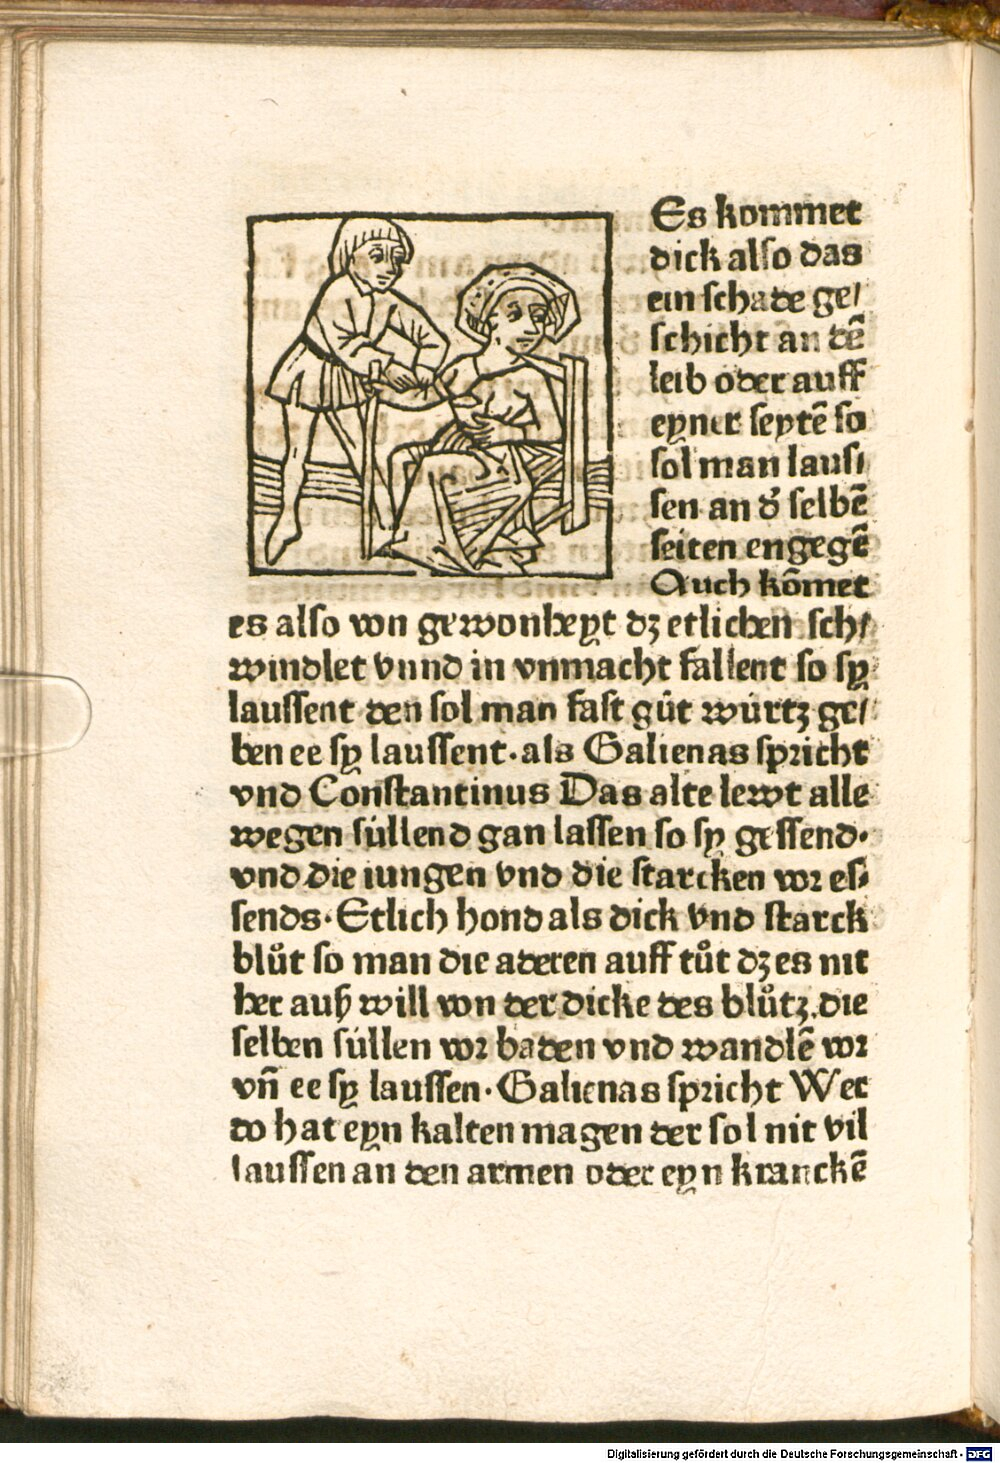 Es kommet
dick also das
ein schade ge/
schicht an dē
leib oder auff
eyner seytē so
sol man laus/
sen an d̕ selbē
seiten engegē
Auch kōmet
es also von gewonheyt dz etlichen sch/
windlet vnnd in vnmacht fallent so sy
laussent den sol man fast gůt würtz ge/
ben ee sy laussent. als Galienas spricht
vnd Constantinus Das alte lewt alle
wegen süllend gan lassen so sy gessend.
vnd die iungen vnd die starcken vor es/
sends. Etlich hond als dick vnd starck
blůt so man die aderen auff tůt dz es nit
her auß will von der dicke des blůtz. die
selben süllen vor baden vnd wandlē vor
vn̄ ee sy laussen. Galienas spricht Wer
do hat eyn kalten magen der sol nit vil
laussen an den armen oder eyn kranckē
Digitalisierung gefördert durch die Deutsche Forschungsgemeinschaft - DFG